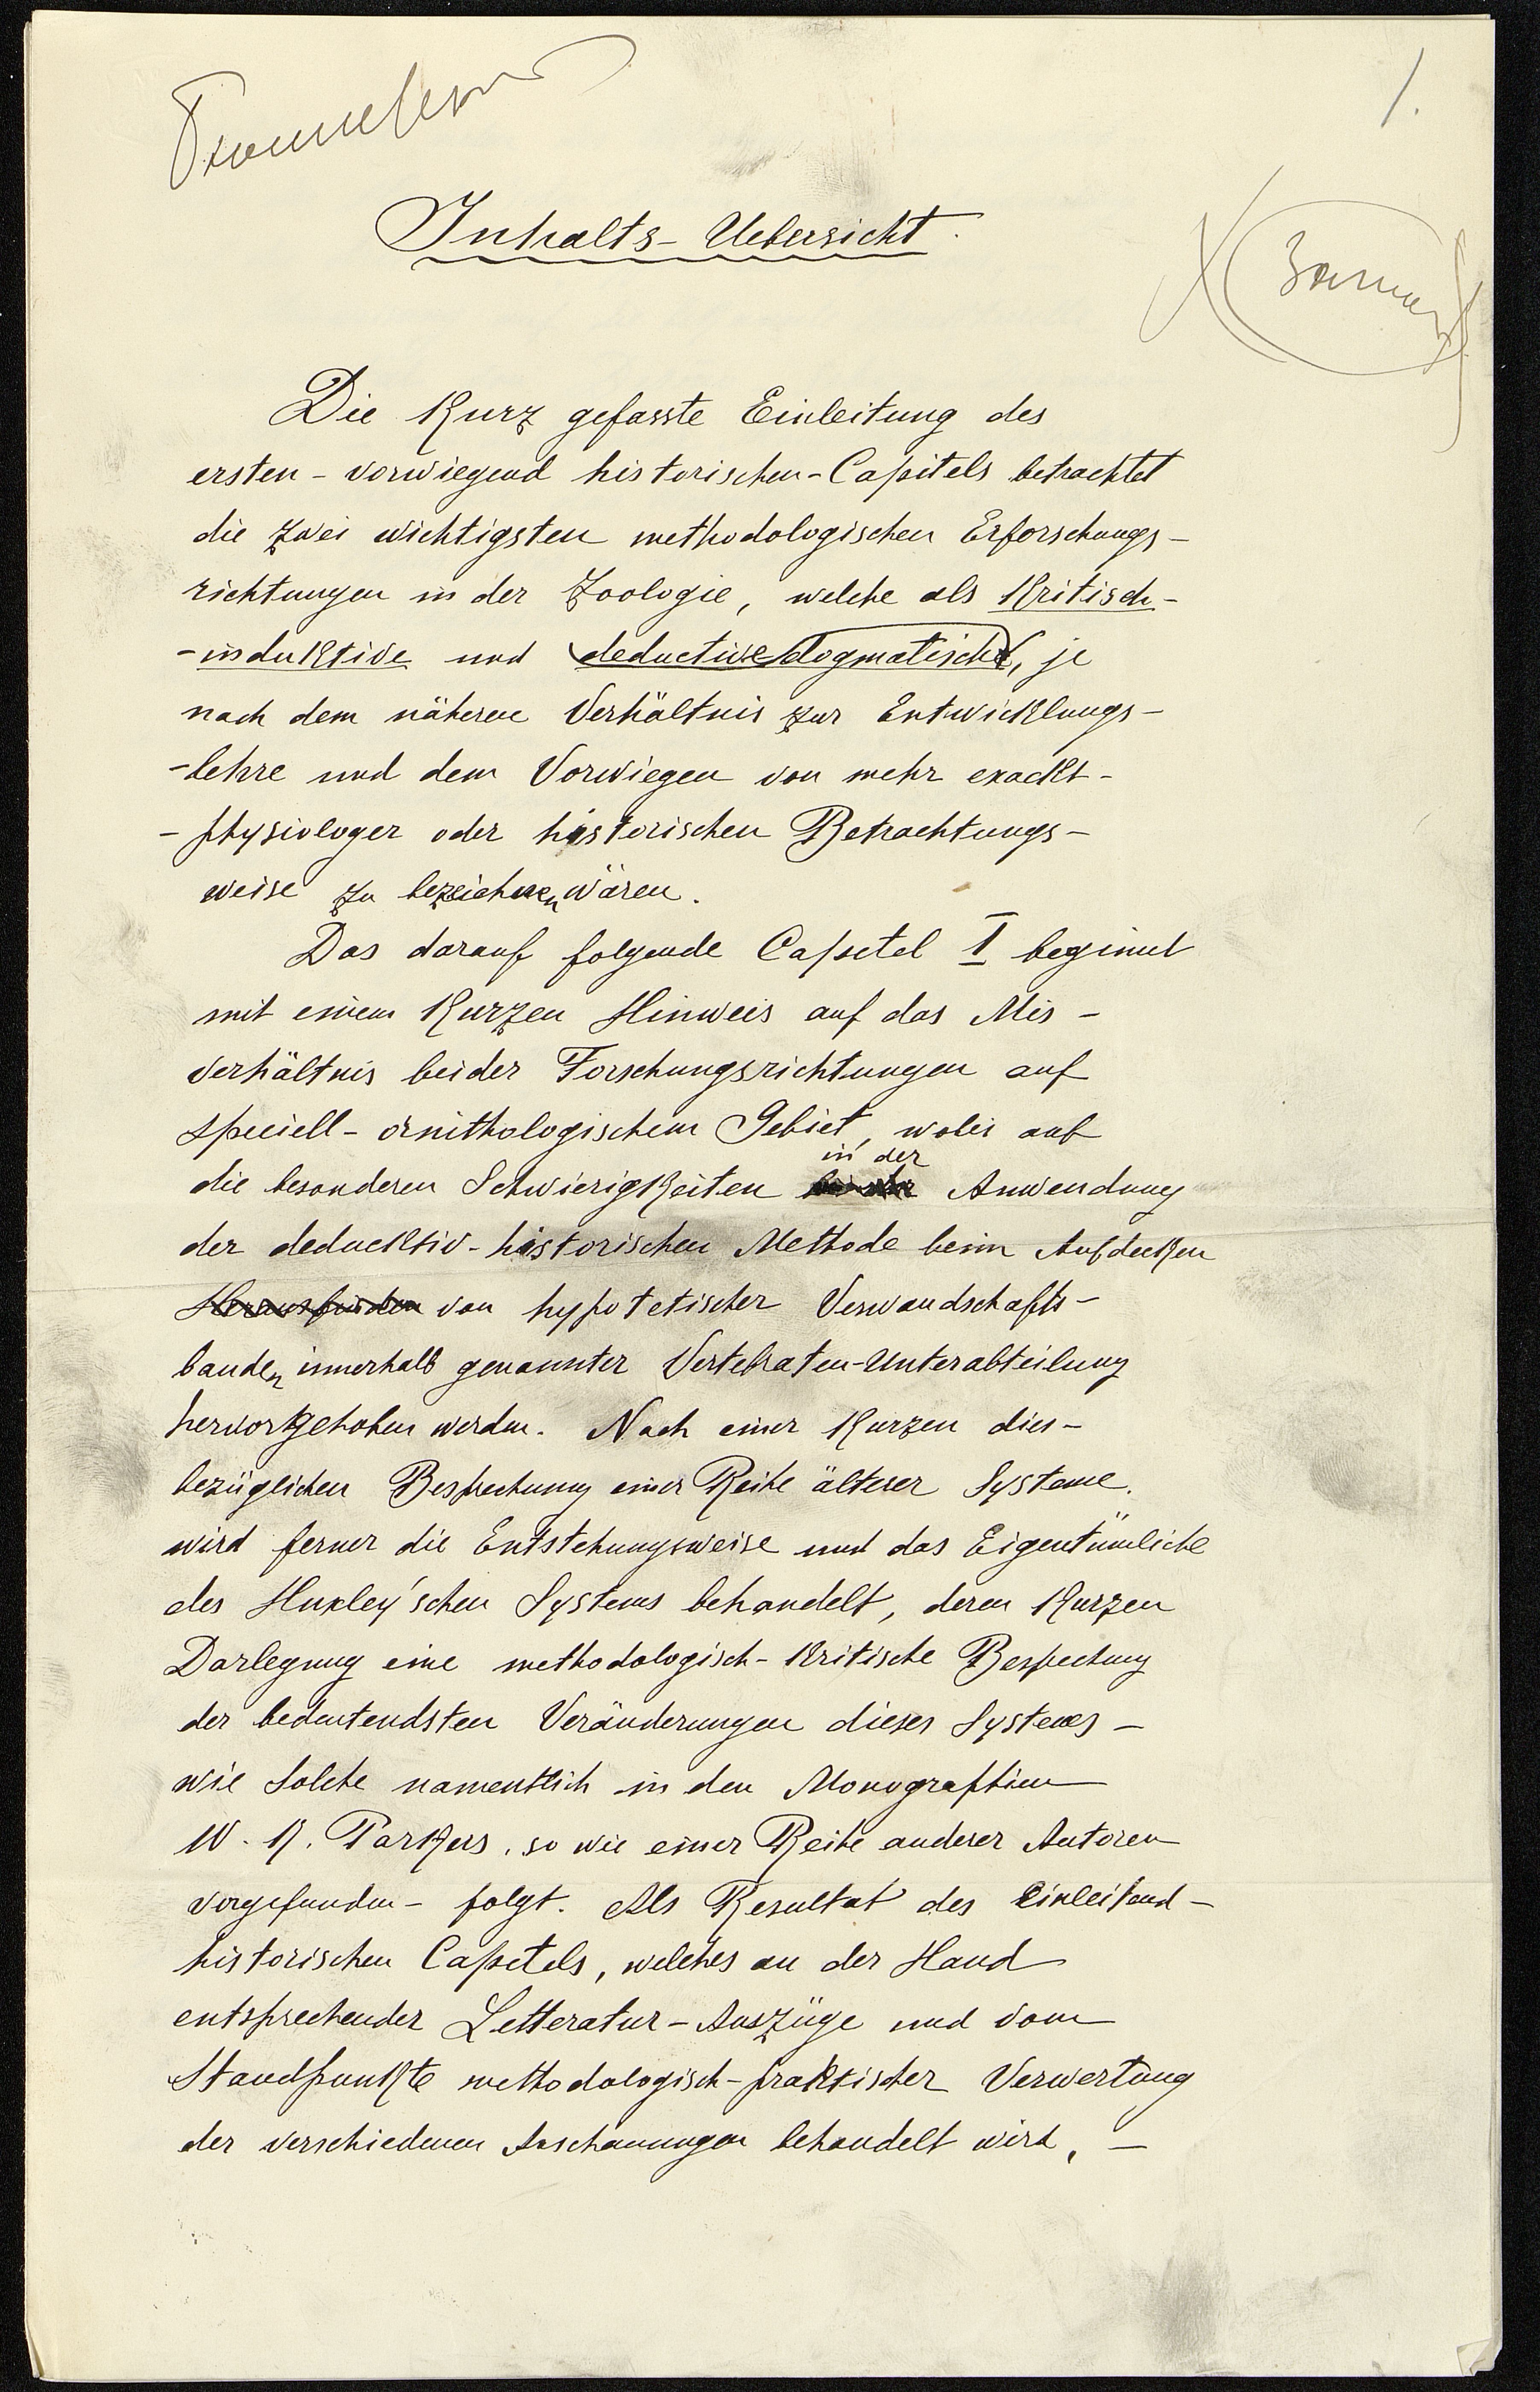 1.
Inhalts-Uebersicht.
Die Kurz gefasste Einleitung des
ersten - vorwiegend historischen - Capitels betrachtet
die zwei wichtigsten methodologischen Erforschungs-
richtungen in der Zoologie, welche als Kritisch-
-induktive und deductive dogmatische, je
nach dem näheren Verhältnis zur Entwicklungs-
-lehre und dem Vorwiegen von mehr exackt-
-physiologer oder historischen Betrachtungs-
weise zu bezeichnen wären.
Das darauf folgende Capitel I beginnt
mit einem Kurzen Hinweis auf das Mis-
verhältnis beider Forschungsrichtungen auf
speciell-ornithologischem Gebiet, wobei auf
in der
die besonderen Schwierigkeiten Anwendung
der deducktiv-historischen Methode beim Aufdecken
Herausfinden von hypotetischer Verwandschafts-
banden innerhalb genannter Vertebraten-Unterabteilung
hervorgehoben werden. Nach einer Kurzen dies-
bezüglichen Besprechung einer Reihe älterer Systeme.
wird ferner die Entstehungsweise und das Eigentümliche
des Huxley'schen Systems behandelt, deren Kurzen
Darlegung eine methodologisch-Kritische Bespechung
der bedeutendsten Veränderungen dieses Systems -
wie solche namentlich in den Monographien
W. K. Parkers, so wie einer Reihe anderer Autoren
vorgefunden - folgt. Als Resultat des einleitend-
historischen Capitels, welches an der Hand
entsprechender Litteratur-Auszüge und vom
Standpunkte methodologisch-praktischer Verwertung
der verschiedenen Anschauungen behandelt wird, -